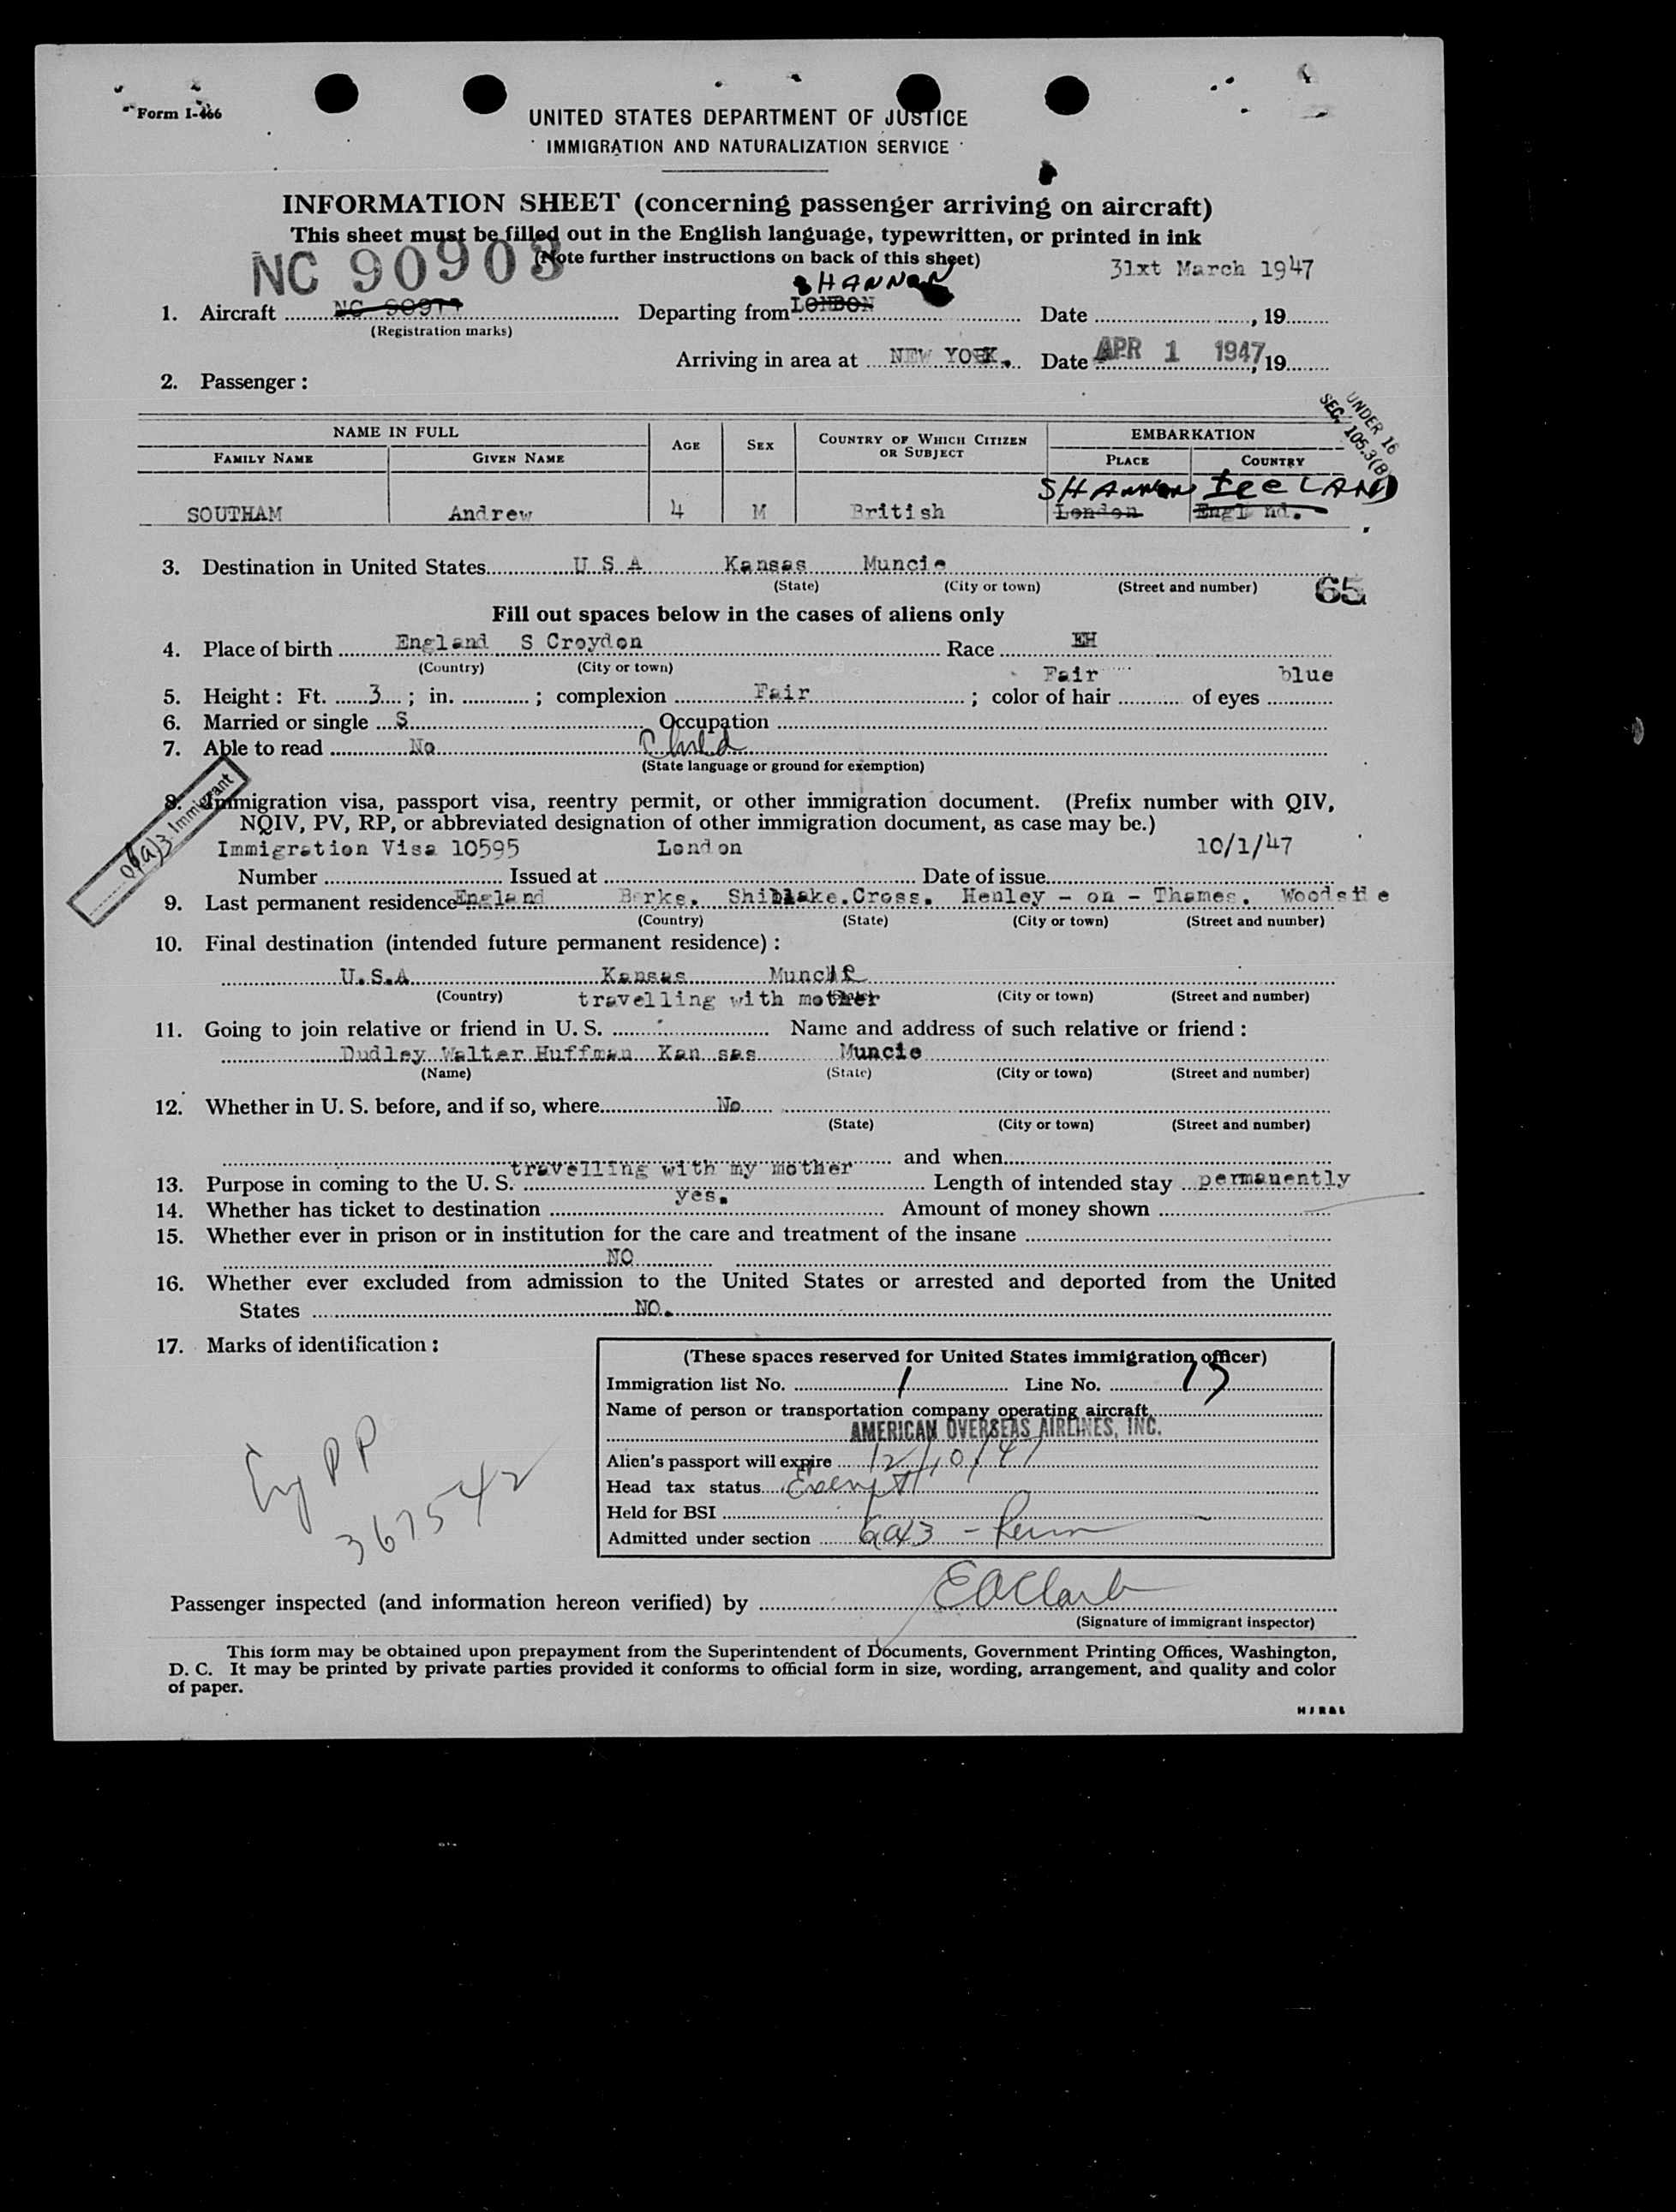 Form I-466
UNITED STATES DEPARTMENT OF JUSTICE
IMMIGRATION AND NATURALIZATION SERVICE
INFORMATION SHEET (concerning passenger arriving on aircraft)
This sheet must be filled out in the English language, typewritten, or printed in ink
NC 90908 (Note further instructions on back of this sheet) 31xt March 1947
SHANNON
1. Aircraft Departing from LONDON Date , 19
(Registration marks)
Arriving in area at NEW YORK. Date APR 1 1947, 19
2. Passenger:
UNDER 16
SEC. 105.3(B)
NAME IN FULL AGE SEX COUNTRY OF WHICH CITIZEN OR SUBJECT EMBARKATION
FAMILY NAME GIVEN NAME PLACE COUNTRY
SHANNON IReLAND
SOUTHAM Andrew 4 M British London Engl nd.
3. Destination in United States U S A Kansas Muncie
(State) (City or town) (Street and number) 65
Fill out spaces below in the cases of aliens only
4. Place of birth England S Croydon Race EH
(Country) (City or town)
Fair blue
5. Height: Ft. 3; in. ; complexion Fair; color of hair of eyes
6. Married or single S Occupation
7. Able to read No Child
(State language or ground for exemption)
Immigrant
8. Immigration visa, passport visa, reentry permit, or other immigration document. (Prefix number with QIV,
NQIV, PV, RP, or abbreviated designation of other immigration document, as case may be.)
Immigration Visa 10595 London 10/1/47
Number Issued at Date of issue
9. Last permanent residence England Berks. Shiplake.Cross. Henley - on - Thames. Woodside
(Country) (State) (City or town) (Street and number)
10. Final destination (intended future permanent residence):
U.S.A Kansas Muncie
(Country) travelling with mother (City or town) (Street and number)
11. Going to join relative or friend in U. S. Name and address of such relative or friend:
Dudley Walter Huffman Kan sas Muncie
(Name) (State) (City or town) (Street and number)
12. Whether in U. S. before, and if so, where No
(State) (City or town) (Street and number)
and when
travelling with my mother
13. Purpose in coming to the U. S. Length of intended stay permanently
yes.
14. Whether has ticket to destination Amount of money shown
15. Whether ever in prison or in institution for the care and treatment of the insane
NO
16. Whether ever excluded from admission to the United States or arrested and deported from the United
States NO.
17. Marks of identification:
(These spaces reserved for United States immigration officer)
Immigration list No. 1 Line No. 13
Name of person or transportation company operating aircraft
AMERICAN OVERSEAS AIRLINES, INC.
Alien's passport will expire 12/10/47
Head tax status Exempt
Held for BSI
Admitted under section 6a3 - Perm
PP
367542
Passenger inspected (and information hereon verified) by EAClark
(Signature of immigrant inspector)
This form may be obtained upon prepayment from the Superintendent of Documents, Government Printing Offices, Washington,
D. C. It may be printed by private parties provided it conforms to official form in size, wording, arrangement, and quality and color
of paper.